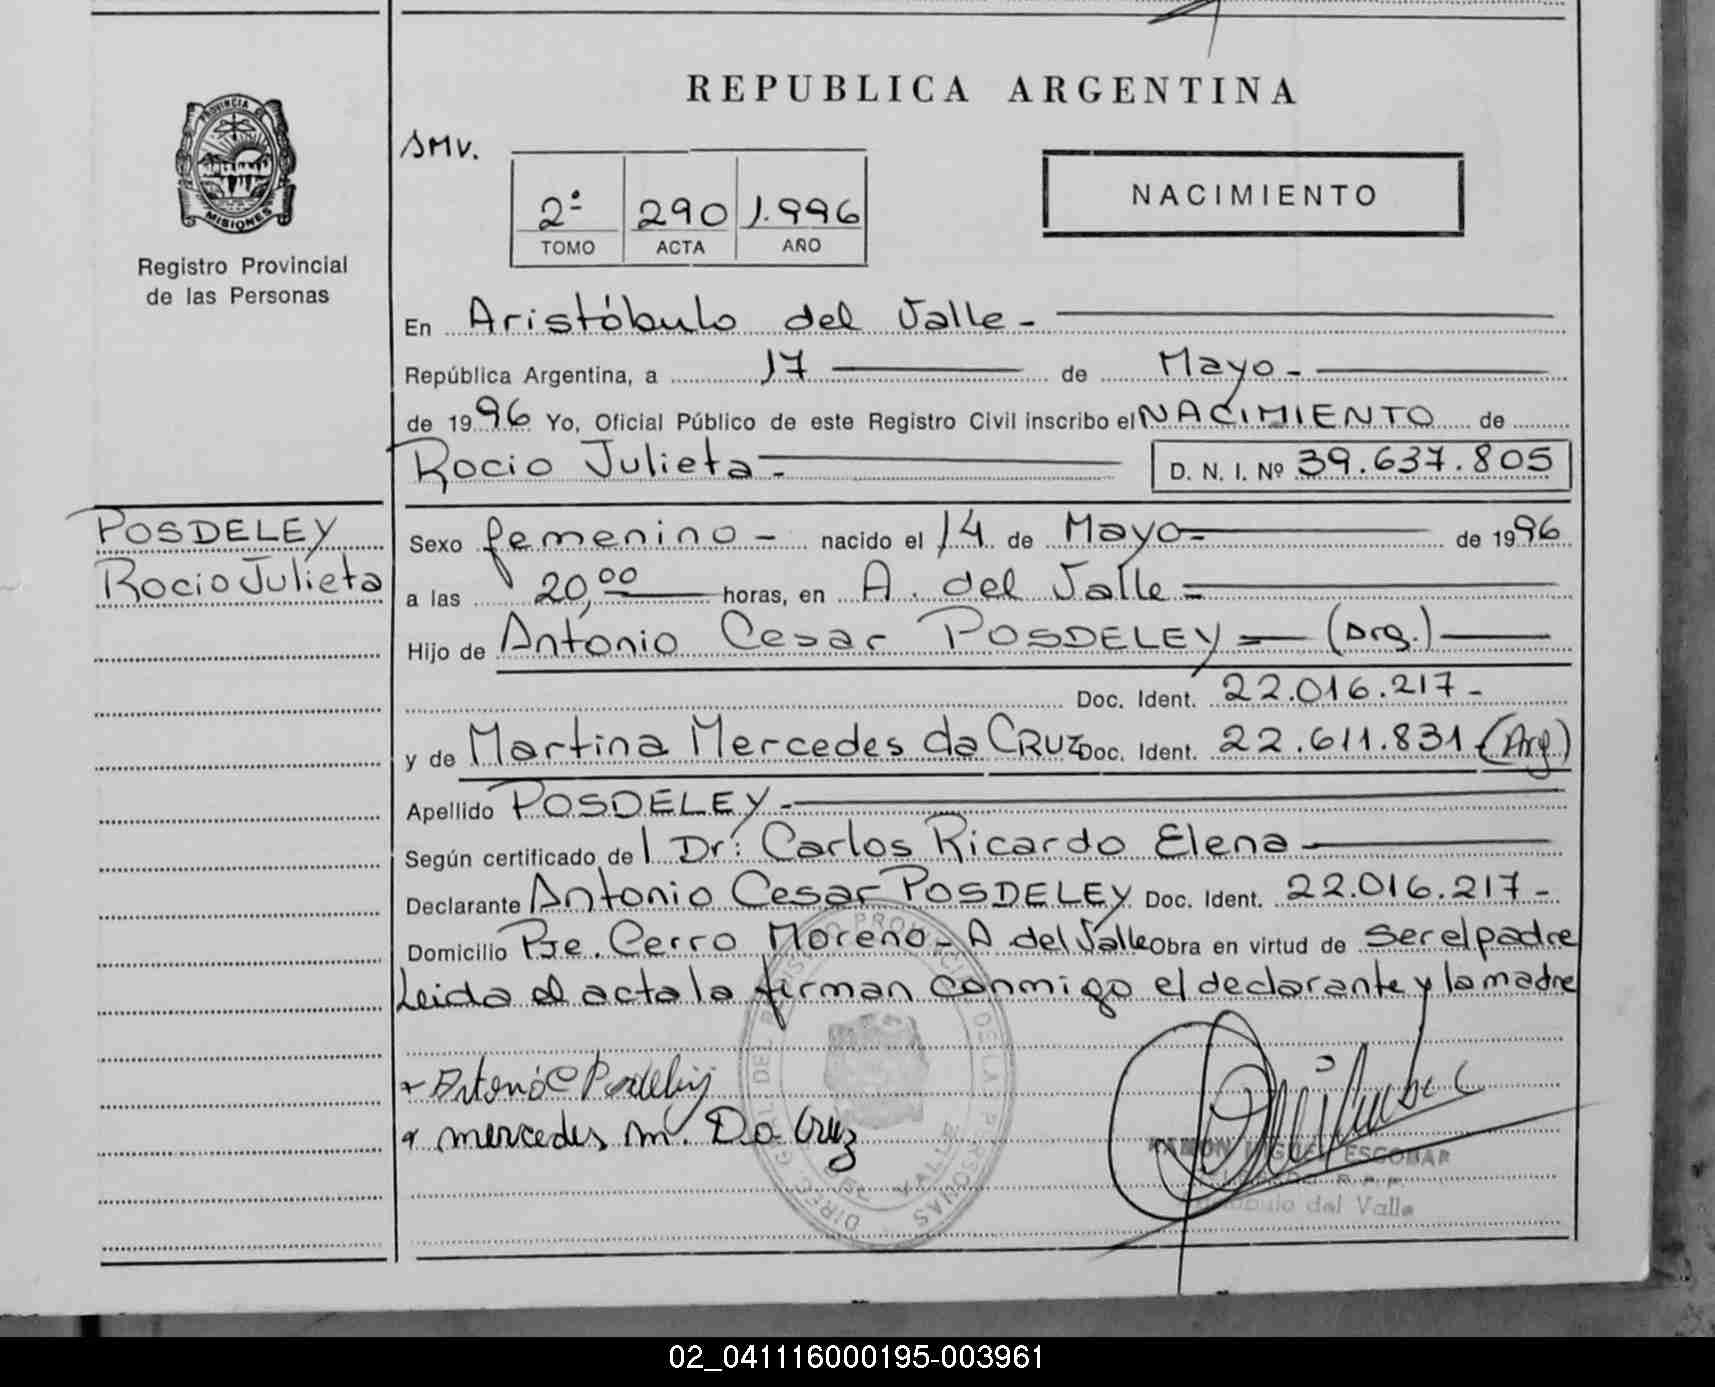 REPUBLICA ARGENTINA
PROVINCIA DE
MISIONES
Registro Provincial
de las Personas
SMV.
2º 290 1.996
TOMO ACTA AÑO
NACIMIENTO
En Aristóbulo del Valle -
República Argentina, a 17 de Mayo -
de 1996 Yo, Oficial Público de este Registro Civil inscribo el NACIMIENTO de
Rocio Julieta - D. N. I. Nº 39.637.805
POSDELEY
Rocio Julieta
Sexo femenino - nacido el 14 de Mayo - de 1996
a las 20,00 horas, en A. del Valle =
Hijo de Antonio Cesar POSDELEY = (Arg.)
Doc. Ident. 22.016.217 -
y de Martina Mercedes da CRUZ Doc. Ident. 22.611.831 (Arg)
Apellido POSDELEY -
Según certificado de l Dr: Carlos Ricardo Elena
Declarante Antonio Cesar POSDELEY Doc. Ident. 22.016.217 -
Domicilio Pje. Cerro Moreno - A del Valle Obra en virtud de ser el padre
Leida el acta la firman conmigo el declarante y la madre
+ Antonio C Posdeley
+ mercedes m. Da Cruz
RAMON MIGUEL ESCOBAR
R.P.P.
del Valle
02_041116000195-003961